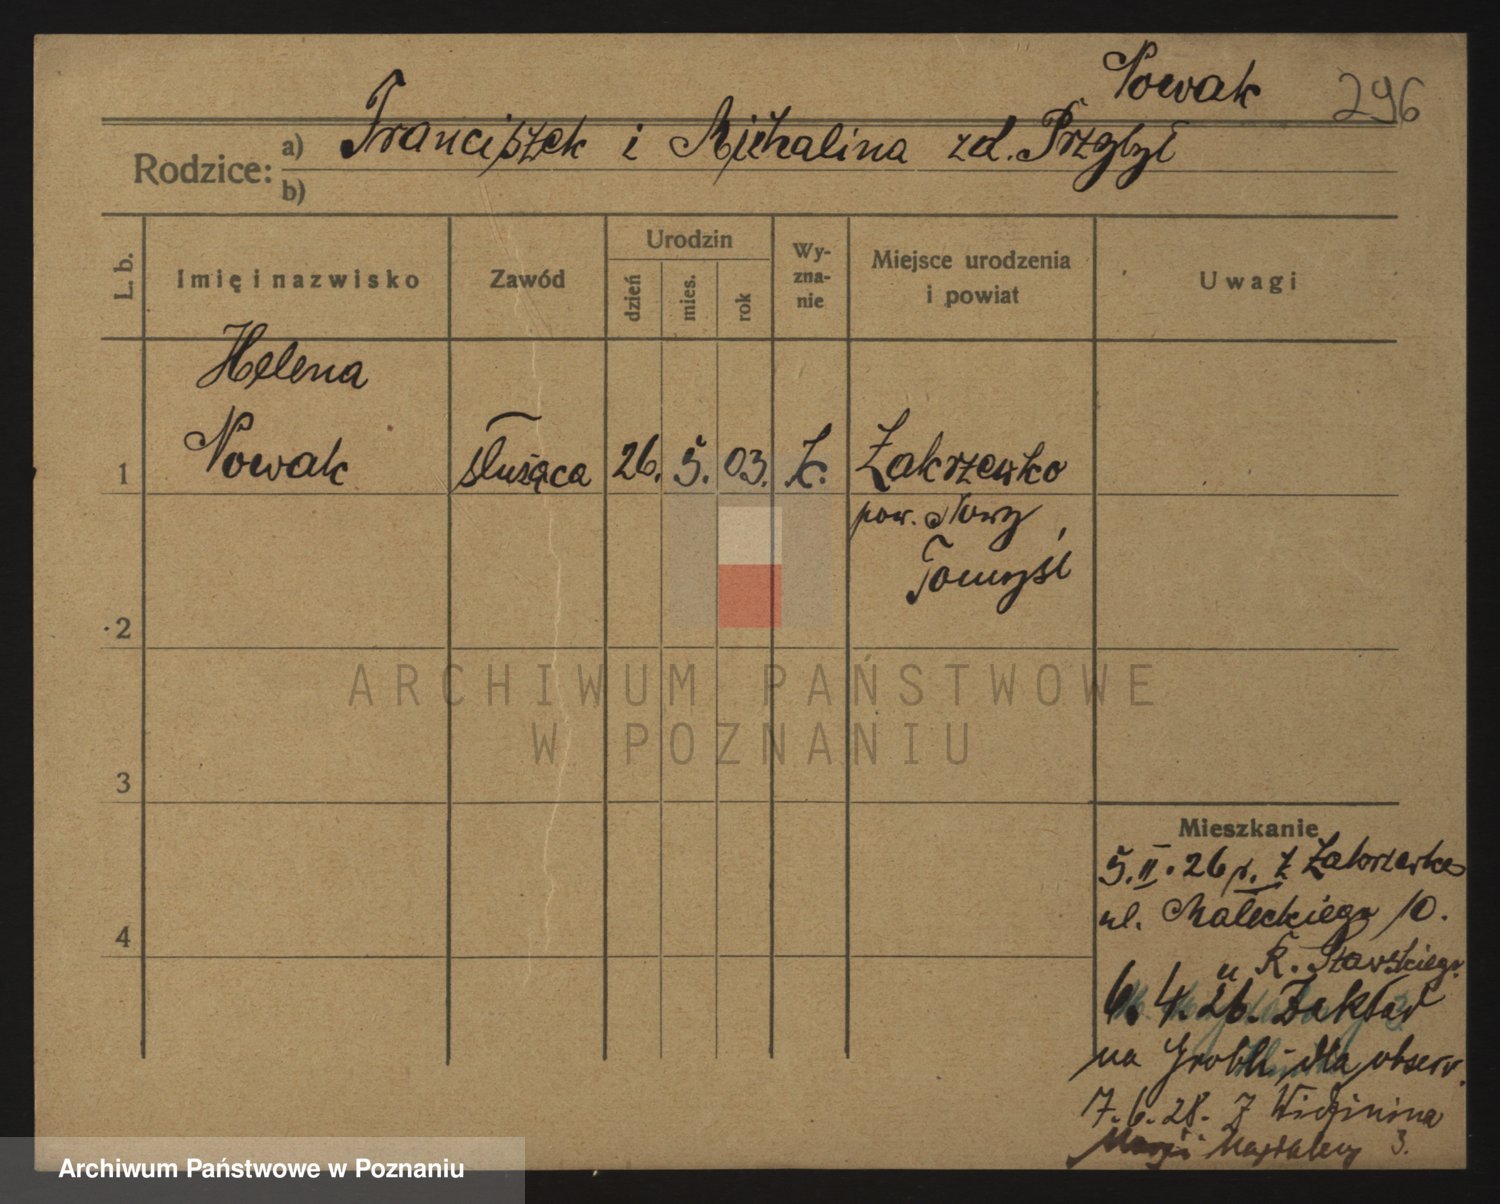 Nowak 296
Rodzice: a) Franciszek i Michalina zd. Przybył
b)
L. b. Imię i nazwisko Zawód Urodzin dzień mies. rok Wy-zna-nie Miejsce urodzenia i powiat Uwagi
Helena
1 Nowak służąca 26. 5. 03. k. Zakrzewko
pow. Nowy
Tomyśl
2
3
4
ARCHIWUM PAŃSTWOWE
W POZNANIU
Mieszkanie
5.II.26 r. z Zakrzewka
ul. Małeckiego 10.
u K. Stawskiego
6. 4. 26. Zakład
na Grobli dla obserw.
7.6.28. z
Marji Magdaleny 3.
Archiwum Państwowe w Poznaniu